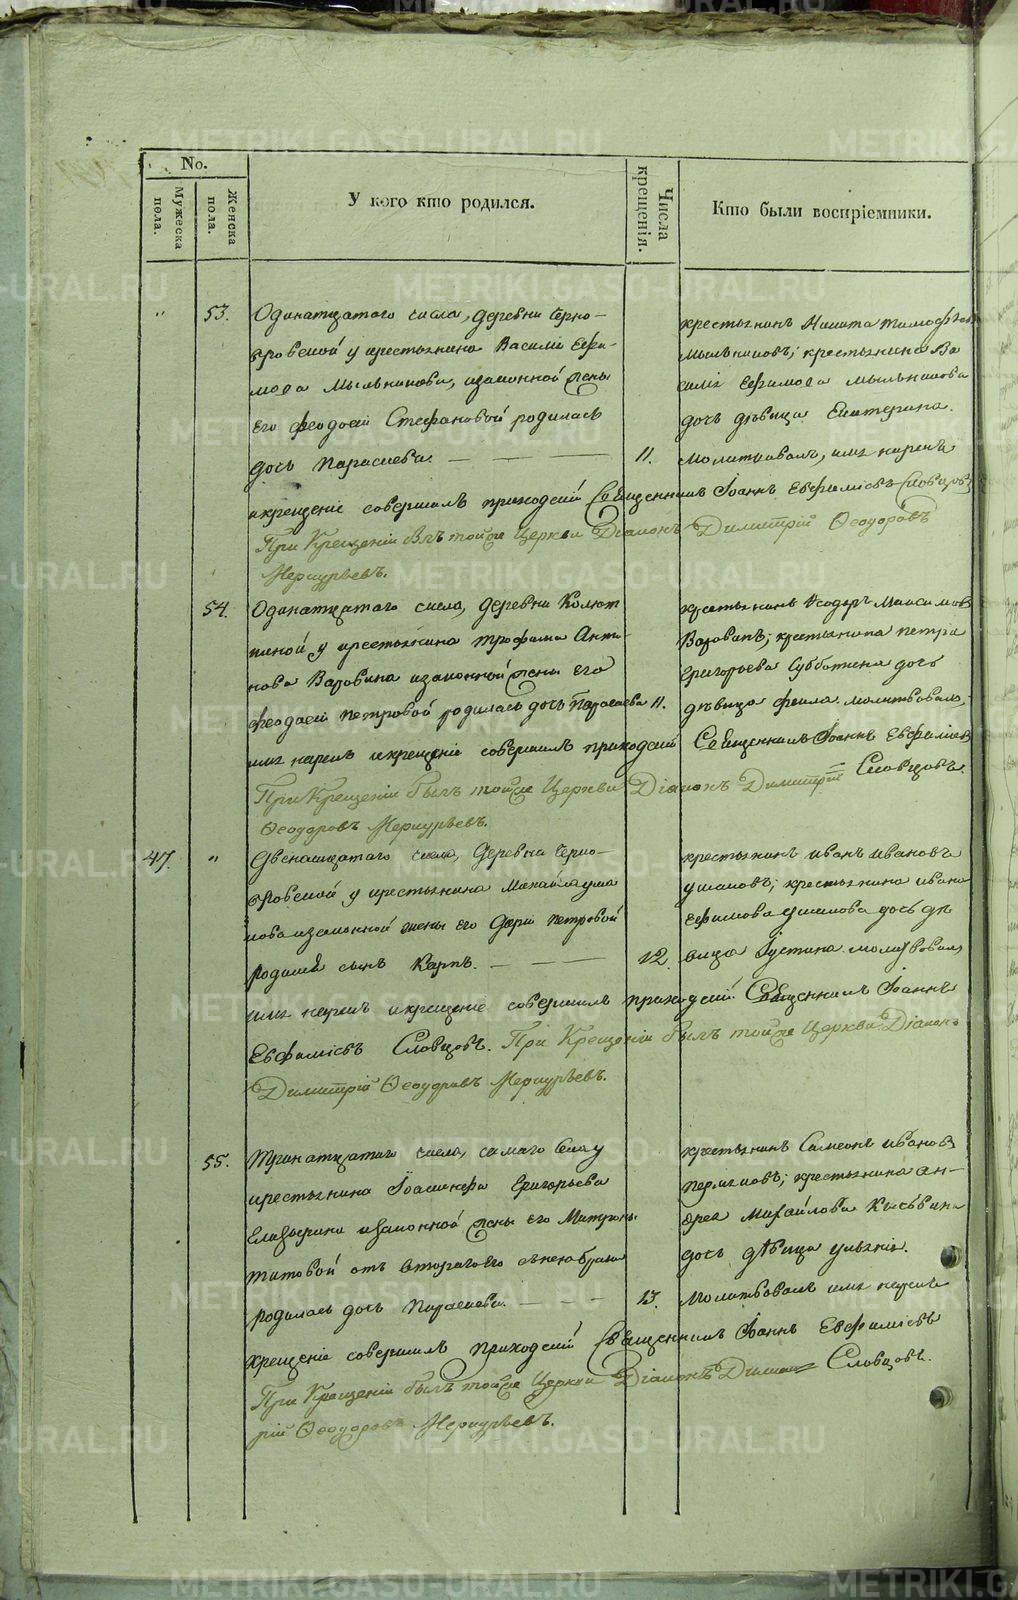 No.
Мужеска пола.
Женска пола.
У кого кто родился.
Числа крещенія.
Кто были воспріемники.
" 53. Одинатцатого числа, деревни Черно-
бровской у крестьянина Василія Ефи-
мова Мыльникова, изаконной жены
его Феодосіи Стефановой родилась
дочь Параскева. 11.
крестьянинъ Никита Тимофѣевъ
Мыльниковъ; крестьянина Ва
силія Ефимова Мыльникова
дочь дѣвица Екатерина.
Молитвовалъ, имя нарекъ
икрещеніе совершилъ приходскій Священникъ Іоаннъ Евфиміевъ Словцовъ
При Крещеніи былъ тойже Церкви Діаконъ Димитрій Ѳеодоровъ
Меркурьевъ.
54. Одинатцатого числа, деревни Колют
киной у крестьянина Трофима Анти-
нова Варовина изаконной жены его
Феодосіи Петровой родилась дочь Параскева 11.
крестьянинъ Ѳеодоръ Максимовъ
Варовинъ; крестьянина Петра
Григорьева Субботина дочь
дѣвица Фекла. молитвовалъ,
имя нарекъ икрещеніе совершилъ приходскій Священникъ Іоаннъ Евфиміевъ
Словцовъ.
При Крещеніи былъ тойже Церкви Діаконъ Димитрій
Ѳеодоровъ Меркурьевъ.
47. " Двенатцатого числа, деревни Черно-
бровской у крестьянина Михайла Уша
кова изаконной жены его Дарьи Петровой
родился сынъ Карпъ. 12.
крестьянинъ Иванъ Ивановъ
Ушаковъ; крестьянина Ивана
Ефимова Ушакова дочь дѣ
вица Іустина. молитвовалъ,
имя нарекъ икрещеніе совершилъ приходскій Священникъ Іоаннъ
Евфиміевъ Словцовъ. При Крещеніи былъ тойже Церкви Діаконъ
Димитрій Ѳеодоровъ Меркурьевъ.
55. Тринатцатого числа, самаго Села у
крестьянина Іоакинфа Григорьева
изаконной жены его Матроны
Титовой отъ втораго его снею брака
родилась дочь Параскева. 13.
крестьянинъ Симеонъ Ивановъ
Пермяковъ; крестьянина Ан-
дрея Михайлова
дочь дѣвица Ульянія.
Молитвовалъ имя нарекъ
крещеніе совершилъ приходскій Священникъ Іоаннъ Евфиміевъ
Словцовъ.
При Крещеніи былъ тойже Церкви Діаконъ Димит
рій Ѳеодоровъ Меркурьевъ.
METRIKI.GASO-URAL.RU